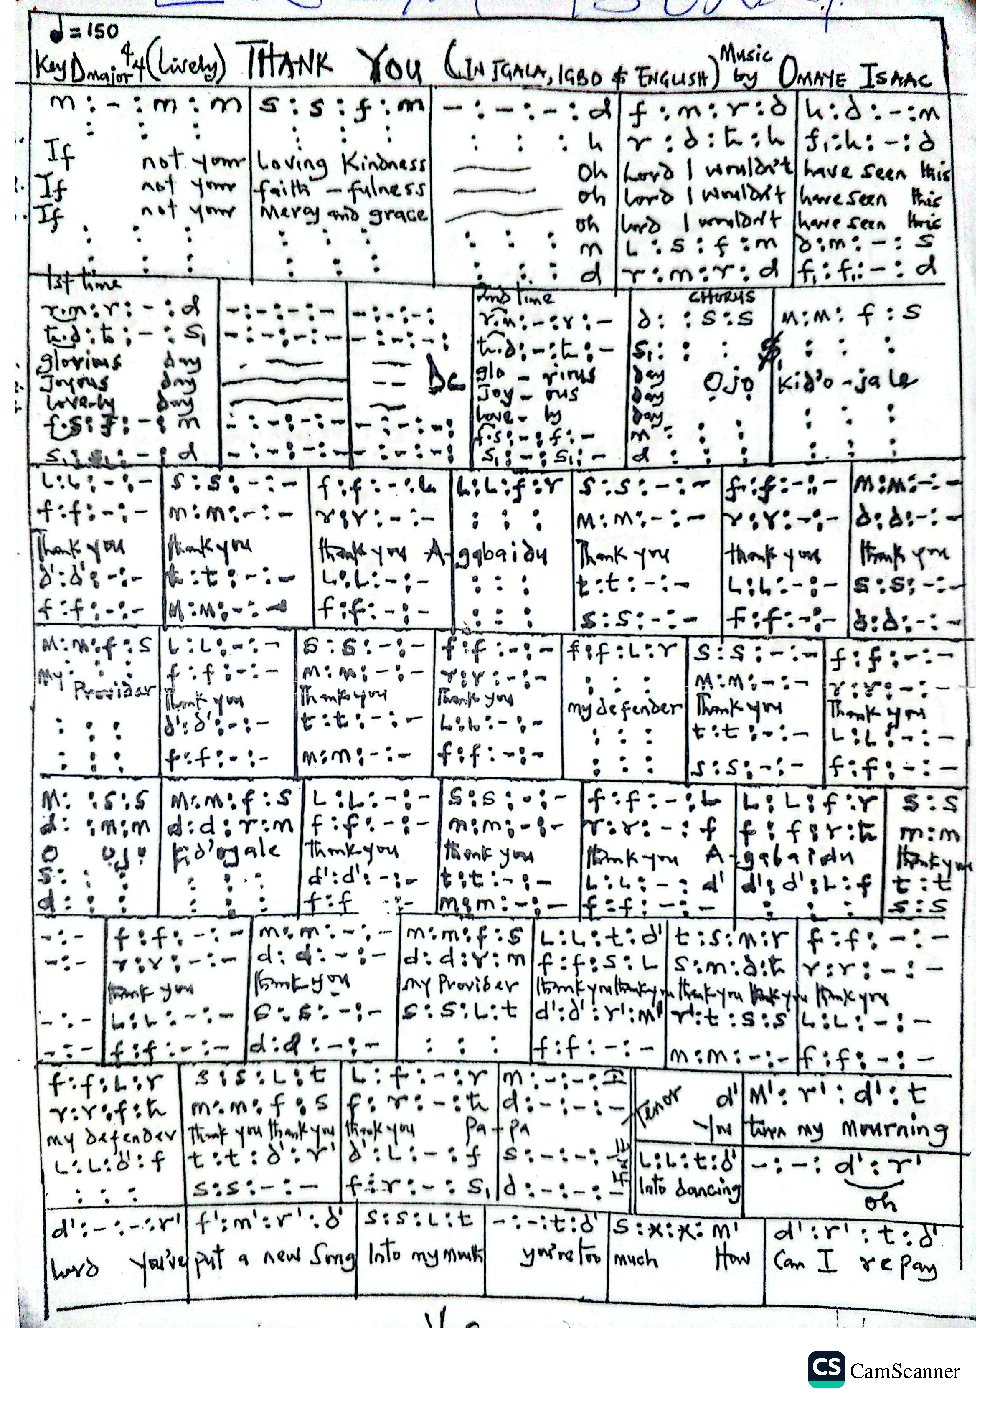 ♩=150
Key D major 4/4 (Lively) THANK YOU (IN IGALA, IGBO & ENGLISH) Music by OMAYE ISAAC
m : - : m : m | s : s : f : m | - : - : - : d | f : m : r : d | l : d : - : m
: : : | : : : | : : : l | r : d : t : l | f₁ : l : - : d
If not your | Loving Kindness | oh | Lord I wouldn't | have seen this
If not your | faith - fulness | oh | Lord I wouldn't | have seen this
If not your | Mercy and grace | oh | Lord I wouldn't | have seen this
: : : | : : : | : : : m | L : s : f : m | d : m : - : s
: : : | : : : | : : : d | r : m : r : d | f₁ : f₁ : - : d
1st time | 2nd time | CHORUS
r.m : r : - : d | - : - : - : - | - : - : - : - | r.m : - : r : - | d : : s : s | m : m : f : s
t.d : t : - : s₁ | - : - : - : - | - : - : - : - | t.d : - : t : - | s₁ : : :
glorious day | glo - rious | day Ojo | Kid'o - jale
Joyous day | D.C | Joy - ous | day
Love-ly day | Love - ly | day
f.s : f : - : m | - : - : - : - | - : - : - : - | f.s : - : f : - | m : : :
s₁ : - : d | - : - : - : - | - : - : - : - | s₁ : - : s₁ : - | d : : :
L : L : - : - | s : s : - : - | f : f : - : L | L : L : f : r | s : s : - : - | f : f : - : - | m : m : - : -
f : f : - : - | m : m : - : - | r : r : - : - | : : : | m : m : - : - | r : r : - : - | d : d : - : -
Thank you | thank you | thank you A- | gabaidu | Thank you | thank you | thank you
d' : d' : - : - | t : t : - : - | L : L : - : - | : : : | t : t : - : - | L : L : - : - | s : s : - : -
f : f : - : - | m : m : - : - | f : f : - : - | : : : | s : s : - : - | f : f : - : - | d : d : - : -
m : m : f : s | L : L : - : - | s : s : - : - | f : f : - : - | f : f : L : r | s : s : - : - | f : f : - : -
f : f : - : - | m : m : - : - | r : r : - : - | : : : | m : m : - : - | r : r : - : -
my Provider | Thank you | Thank you | Thank you | my defender | Thank you | Thank you
: : : | d' : d' : - : - | t : t : - : - | L : L : - : - | : : : | t : t : - : - | L : L : - : -
: : : | f : f : - : - | m : m : - : - | f : f : - : - | : : : | s : s : - : - | f : f : - : -
m : : s : s | m : m : f : s | L : L : - : - | s : s : - : - | f : f : - : L | L : L : f : r | s : s
d : : m : m | d : d : r : m | f : f : - : - | m : m : - : - | r : r : - : f | f : f : r : t | m : m
O ojo | kid'ojale | thank you | thank you | thank you A- | gabaidu | thank you
s : : : | : : : | d' : d' : - : - | t : t : - : - | L : L : - : d' | d' : d' : L : f | t : t
d : : : | : : : | f : f | m : m : - : - | f : f : - : - | : : : | s : s
- : - | f : f : - : - | m : m : - : - | m : m : f : s | L : L : t : d' | t : s : m : r | f : f : - : -
- : - | r : r : - : - | d : d : - : - | d : d : r : m | f : f : s : L | s : m : d : t | r : r : - : -
thank you | thank you | my Provider | thank you thank you | thank you thank you | thank you
- : - | L : L : - : - | s : s : - : - | s : s : L : t | d' : d' : r' : m' | r' : t : s : s | L : L : - : -
- : - | f : f : - : - | d : d : - : - | : : : | f : f : - : - | m : m : - : - | f : f : - : -
f : f : L : r | s : s : L : t | L : f : - : r | m : - : - : - | Tenor d' | m' : r' : d' : t
r : r : f : t | m : m : f : s | f : r : - : t | d : - : - : - | You | turn my mourning
my defender | thank you thank you | thank you | Pa - pa
L : L : d' : f | t : t : d' : r' | d' : L : - : f | s : - : - : - | L : L : t : d' | - : - : d' : r'
: : : | s : s : - : - | f : r : - : s₁ | d : - : - : - | Into dancing | oh
d' : - : - : r' | f' : m' : r' : d' | s : s : L : t | - : - : t : d' | s : x : x : m' | d' : r' : t : d'
Lord You've | put a new song | Into my mouth | you're too | much How | Can I repay
CS CamScanner